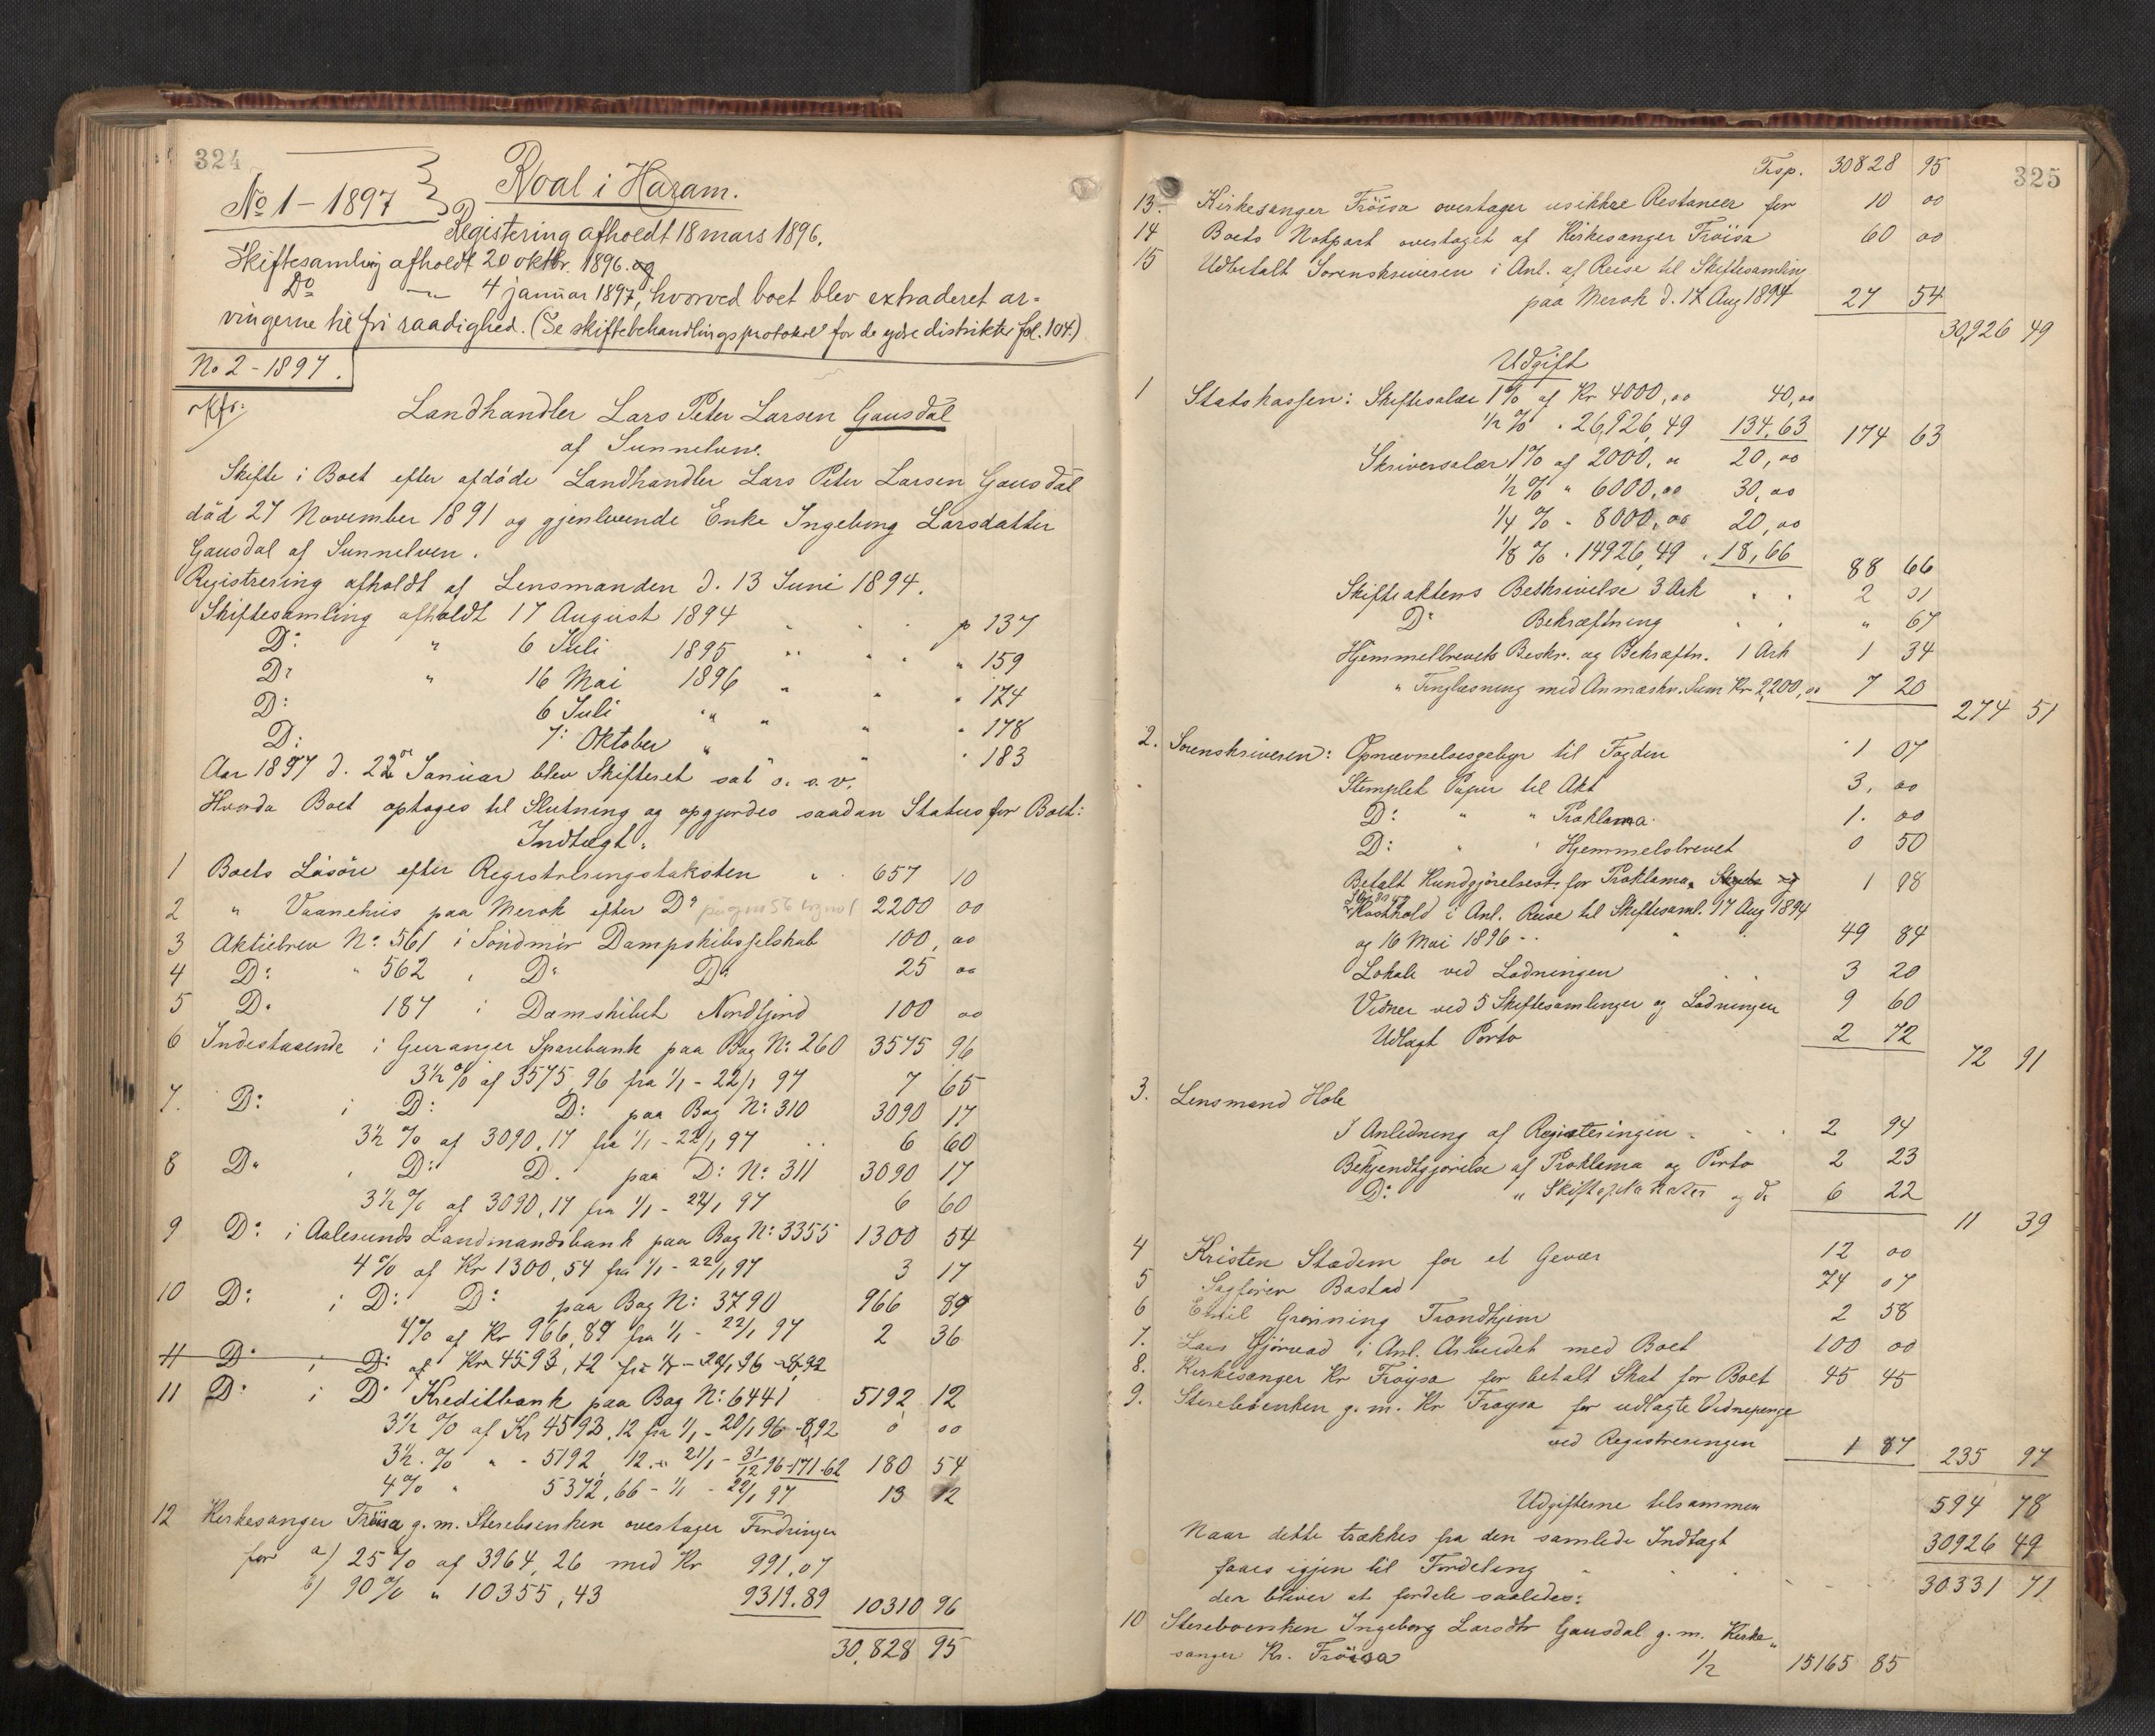 324
No 1 - 1897
Roal i Haram.
Registering afholdt 18 mars 1896.
Skiftesamling afholdt 20 oktbr. 1896. og
Do —"— 4 januar 1897, hvorved boet blev extraderet ar-
vingerne til fri raadighed. (Se skiftebehandlingsprotokol for de ydre distrikter fol. 104.)
No 2 - 1897.
Landhandler Lars Peter Larsen Gausdal
af Sunnelven.
Skifte i Boet efter afdöde Landhandler Lars Peter Larsen Gausdal
död 27 November 1891 og gjenlevende Enke Ingeborg Larsdatter
Gausdal af Sunnelven.
Registrering afholdt af Lensmanden d. 13 Juni 1894.
Skiftesamling afholdt 17 August 1894 p 137
D: " 6 Juli 1895 " " 159
D: " 16 Mai 1896 " " 174
D: 6 Juli " " " 178
D: 7: Oktober " " " 183
Aar 1897 d. 22 Januar blev Skifteret sat o. s. v.
Hvorda Boet optoges til Slutning og opgjordes saadan Status for Boet:
Indtægt.
1 Boets Lösöre efter Registreringstaksten " 657 10
2 " Vaanehus paa Merok efter D: 2200 00
3 Aktiebrev No: 561 i Söndmör Dampskibsselskab 100, 00
4 D: " 562 " D: D: 25 00
5 D. 187 i Damskibet Nordfjord 100 00
6 Indestaaende i Geiranger Sparebank paa Bog No: 260 3575 96
3½% af 3575,96 fra 1/1 - 22/1 97 7 65
7. D: i D: D: paa Bog No: 310 3090 17
3½ % af 3090,17 fra 1/1 - 22/1 97 6 60
8 D. " D: D. paa D: No: 311 3090 17
3½% af 3090,17 fra 1/1 - 22/1 97 6 60
9 D: i Aalesunds Landmandsbank paa Bog No: 3355 1300 54
4% af Kr 1300,54 fra 1/1 - 22/1 97 3 17
10 D: i D: D: paa Bog No: 3790 966 89
4% af Kr 966,89 fra 1/1 - 22/1 97 2 36
11 D: i D: af Kr 4593,12 fra 1/1 - 20/1 96 - 8,92
11 D: i D: Kreditbank paa Bog No: 6441 5192 12
3½ % af Kr 4593,12 fra 1/1 - 20/1 96 - 8,92 0 00
3½ % " - 5192,12 " 21/1 - 31/12 96 - 171.62 180 54
4% " 5372,66 - 1/1 - 22/1 97 13 12
12 Kirkesanger Fröisa g. m. Sterboenken overtager Fordringer
for a) 25% af 3964,26 med Kr 991,07
b) 90% " 10355,43 9319.89 10310 96
30,828 95
325
Trsp. 30828 95
13. Kirkesanger Fröisa overtager usikkre Restancer for 10 00
14 Boets Notpart overtaget af Kirkesanger Fröisa 60 00
15 Udbetalt Sorenskriveren i Anl. af Reise til Skiftesamling
paa Merok d. 17 Aug 1894 27 54
30,926 49
Udgift
1 Statskassen: Skiftesalær 1% af Kr 4000,00 40,00
½ % " 26,926,49 134,63 174 63
Skriversalær 1% af 2000, 00 20,00
½ % " 6000,00 30,00
¼ % " 8000,00 20,00
⅛ % " 14926,49 " 18,66 88 66
Skifteaktens Beskrivelse 3 Ark " " 2 01
D: Bekræftning " " " 67
Hjemmelbrevets Beskr. og Bekræftn. 1 Ark 1 34
" Tinglæsning med Anmærkn. Sum Kr 2,200,00 7 20
274 51
2. Sorenskriveren: Opnævnelsesgebyr til Fogden 1 07
Stemplet Papir til Akt 3, 00
D: " " Proklama. 1. 00
D: " " Hjemmelsbrevet 0 50
Betalt Kundgjörelsest. for Proklama, 1 98
Kosthold i Anl. Reise til Skiftesaml. 17 Aug 1894
og 16 Mai 1896 - 49 84
Lokale ved Lodningen 3 20
Vidner ved 5 Skiftesamlinger og Lodningen 9 60
Udlagt Porto 2 72
72 91
3. Lensmand Hole
I Anledning af Registeringen 2 94
Bekjendtgjörelse af Proklama og Porto 2 23
D: " og D: 6 22
11 39
4 Kristen Stadem for et Gevær 12 00
5 Sagförer Bastad 74 07
6 Emil Grönning Trondhjem 2 58
7. Lars Gjörvad i Anl. Arbeidet med Boet 100 00
8. Kirkesanger Kr Fröysa for betalt Skat for Boet 45 45
9. Sterboenken g. m. Kr Fröysa for udlagte Vidnepenge
ved Registreringen 1 87 235 97
Udgifterne tilsammen 594 78
Naar dette trækkes fra den samlede Indtægt 30926 49
faaes igjen til Fordeling 30331 71
der bliver at fordele saaledes:
10 Sterboenken Ingeborg Larsdtr Gausdal g. m. Kirke"
sanger Kr. Fröisa 1/2 15165 85